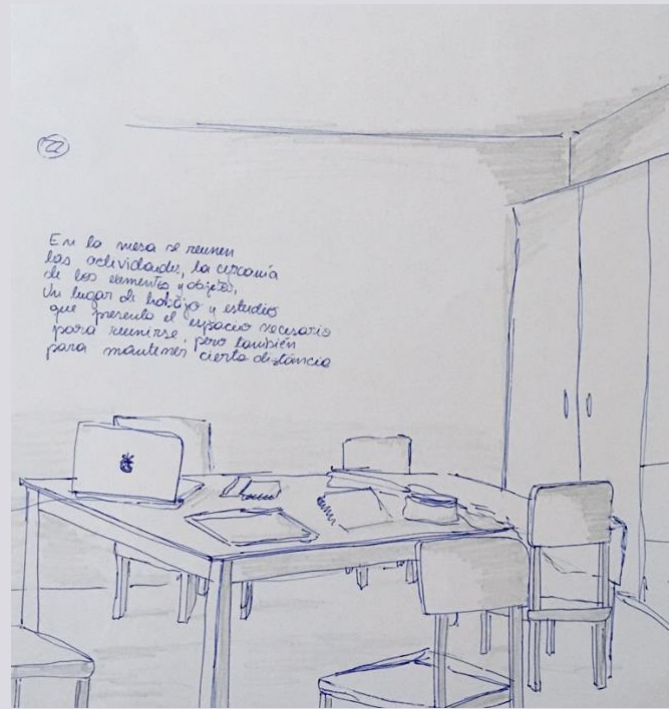 22
En la mesa se reunen
las actividades, la cercanía
de los elementos y objetos,
Un lugar de trabajo y estudio
que presenta el espacio necesario
para reunirse, pero también
para mantener cierta distancia